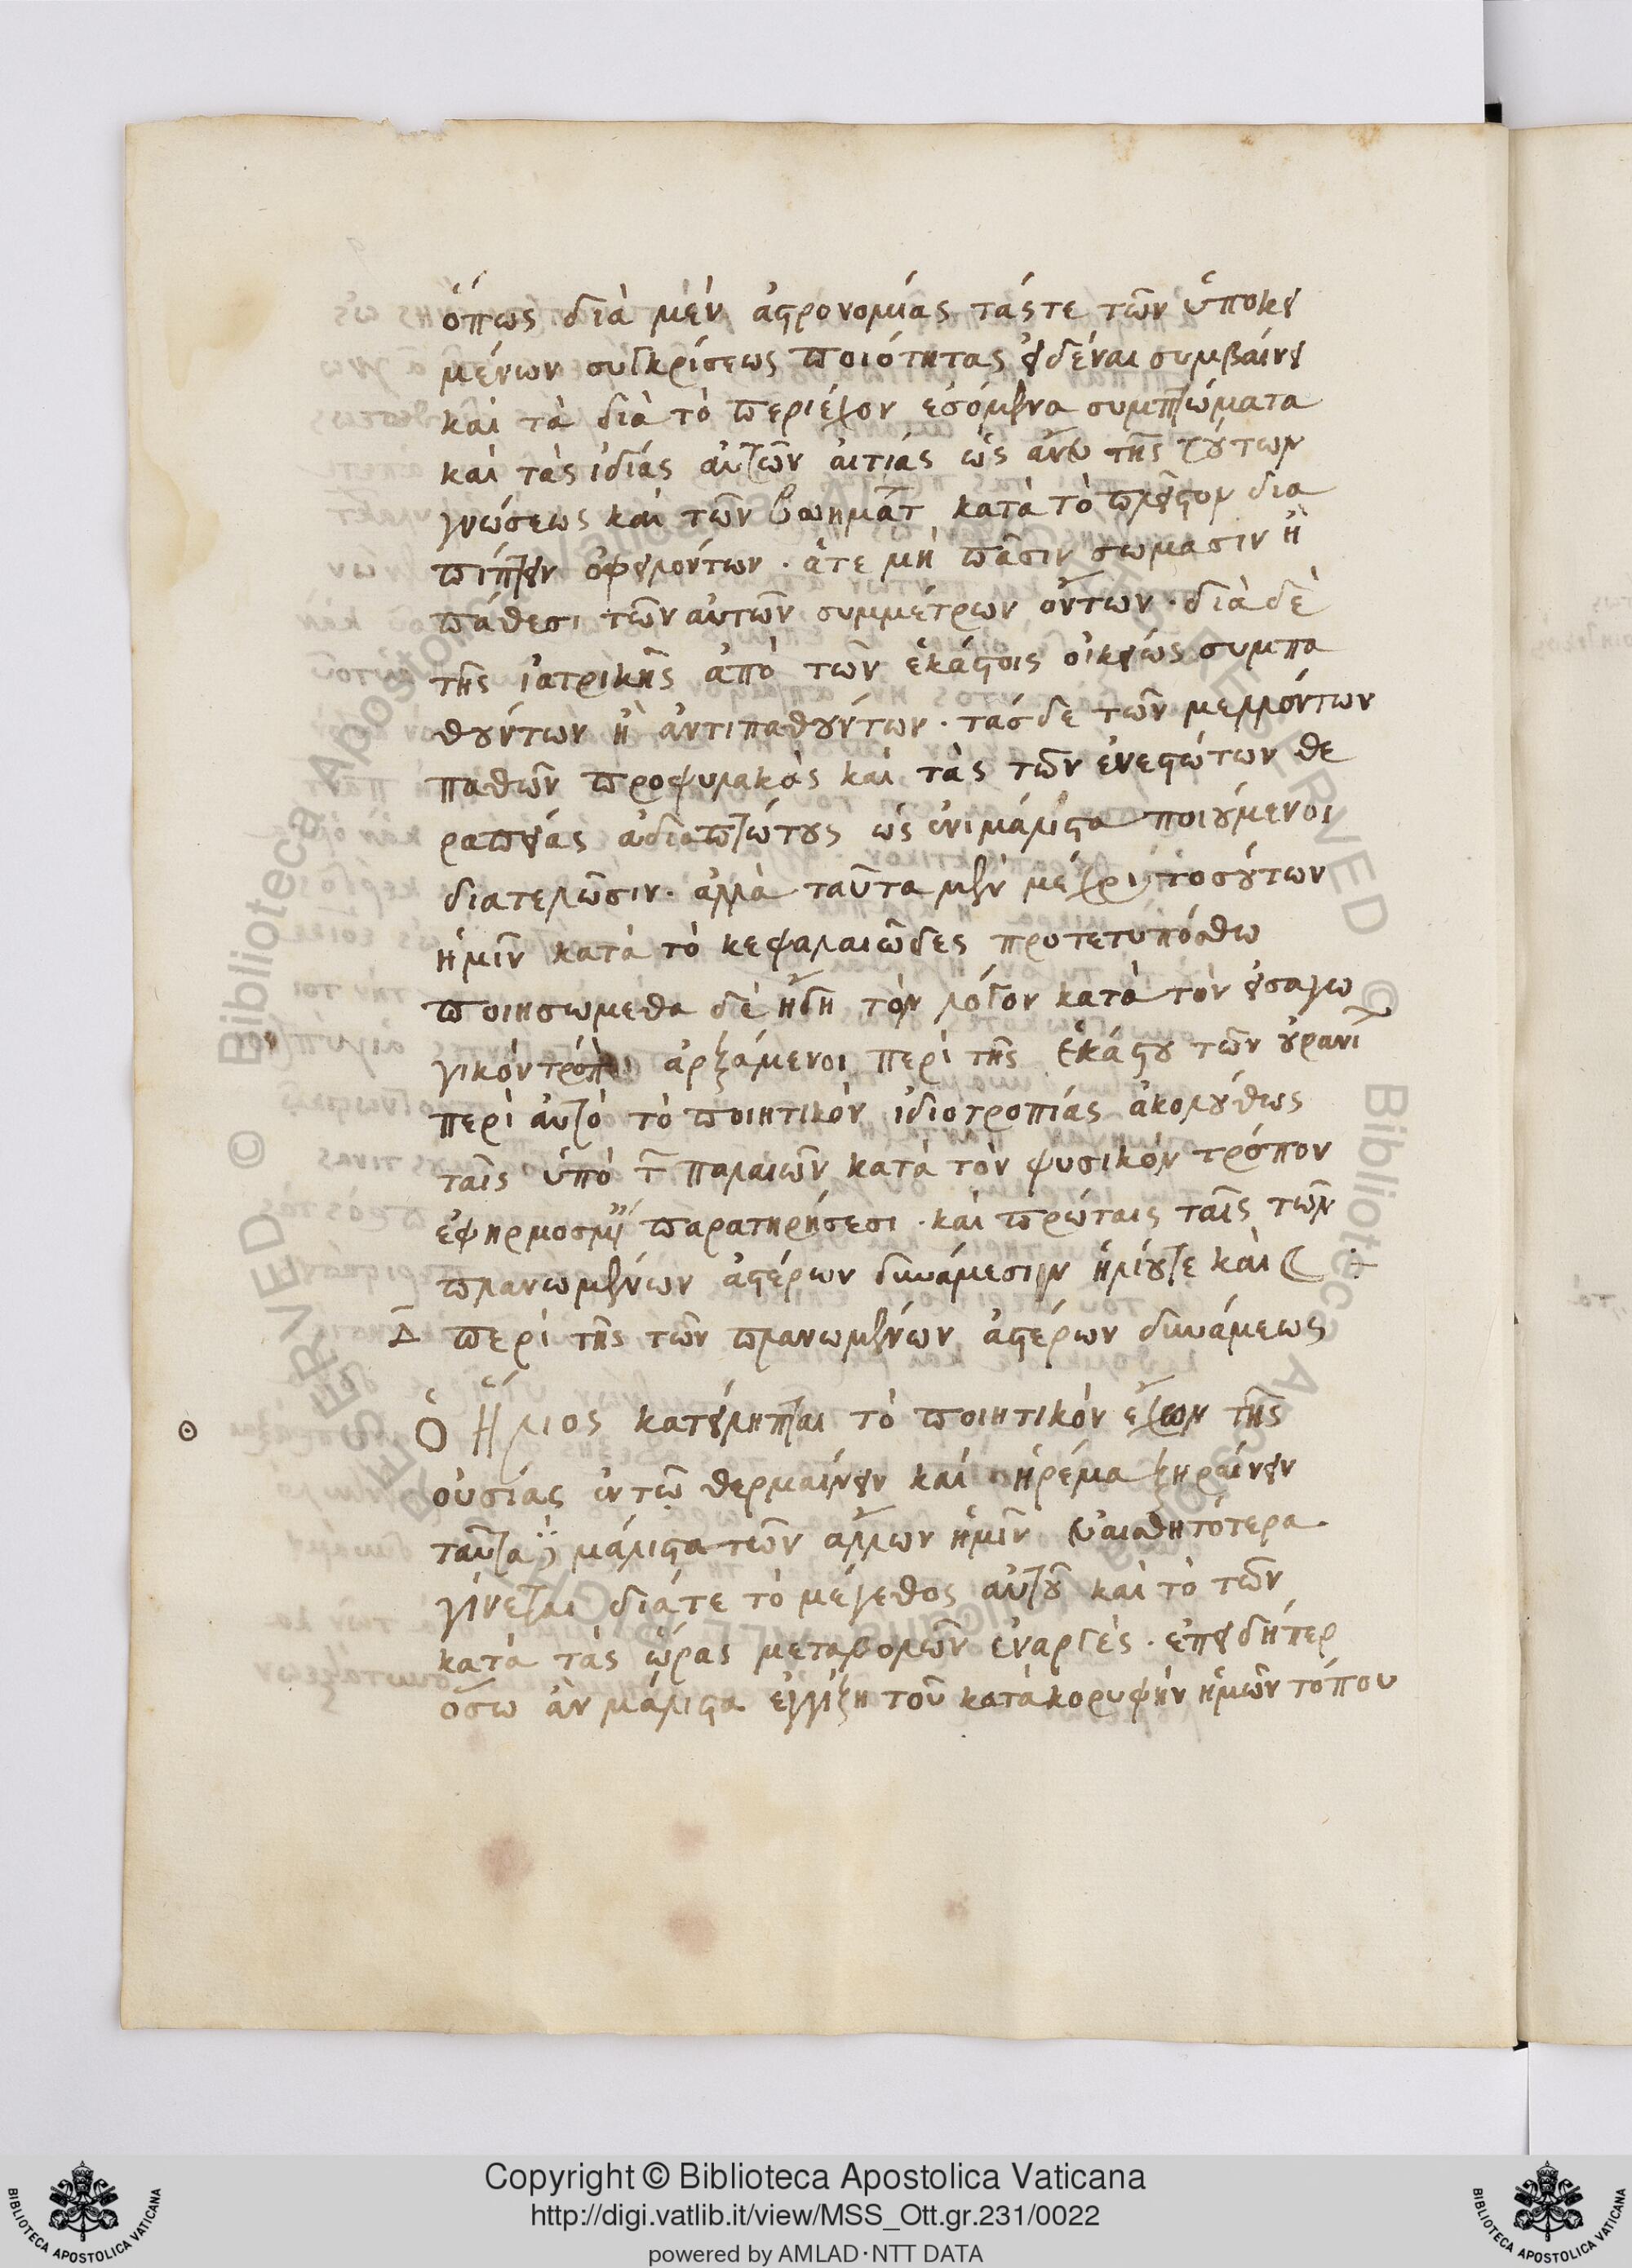 ὅπως διὰ μὲν ἀστρονομίας τάς τε τῶν ὑποκει
μένων συγκρίσεως ποιότητας εἰδέναι συμβαίνει
καὶ τὰ διὰ τὸ περιέχον ἐσόμενα συμπτώματα
καὶ τὰς ἰδίας αὐτῶν αἰτίας ὡς ἄνευ τῆς τούτων
γνώσεως καὶ τῶν βοημάτ κατὰ τὸ πλεῖστον δια
πίπτειν ὀφειλόντων · ἅτε μὴ πᾶσιν σώμασιν ἢ
πάθεσι τῶν αὐτῶν συμμέτρων ὄντων · διὰ δὲ
τῆς ἰατρικῆς ἀπὸ τῶν ἑκάστοις οἰκείως συμπα
θούντων ἢ ἀντιπαθούντων · τάς δε τῶν μελλόντων
παθῶν προφυλακὰς καὶ τὰς τῶν ἐνεστώτων θε
ραπείας ἀδιαπτώτους ὡς ἔνι μάλιστα ποιούμενοι
διατελῶσιν · ἀλλὰ ταῦτα μὲν μέχρι τοσούτων
ἡμῖν κατὰ τὸ κεφαλαιῶδες προτετυπώσθω
ποιησώμεθα δὲ ἤδη τὸν λόγον κατὰ τὸν εἰσαγω
γικόν τρόπον ἀρξάμενοι περὶ τῆς ἑκάστου τῶν οὐρανί
περὶ αὐτὸ τὸ ποιητικὸν ἰδιοτροπίας ἀκολούθως
ταῖς ὑπὸ τ παλαιῶν κατὰ τὸν φυσικὸν τρόπον
ἐφηρμοσμ παρατηρήσεσι · καὶ πρώταις ταῖς τῶν
πλανωμένων ἀστέρων δυνάμεσιν ἡλίου τε καὶ ☾ ⁘
Δ περὶ τῆς τῶν πλανωμένων ἀστέρων δυνάμεως
☉ Ὁ Ἥλιος κατείληπται τὸ ποιητικὸν ἔχων τῆς
οὐσίας ἐν τῷ θερμαίνειν καὶ ἠρέμα ξηραίνειν
ταῦτα δὲ μάλιστα τῶν ἄλλων ἡμῖν εὐαισθητότερα
γίνεται διά τε τὸ μέγεθος αὐτοῦ καὶ τὸ τῶν
κατὰ τὰς ὥρας μεταβολῶν ἐναργές · ἐπειδήπερ
ὅσω ἂν μάλιστα ἐγγίζη τοῦ κατὰ κορυφὴν ἡμῶν τόπου
© Biblioteca Apostolica Vaticana
Copyright © Biblioteca Apostolica Vaticana
http://digi.vatlib.it/view/MSS_Ott.gr.231/0022
powered by AMLAD·NTT DATA
BIBLIOTECA APOSTOLICA VATICANA
BIBLIOTECA APOSTOLICA VATICANA